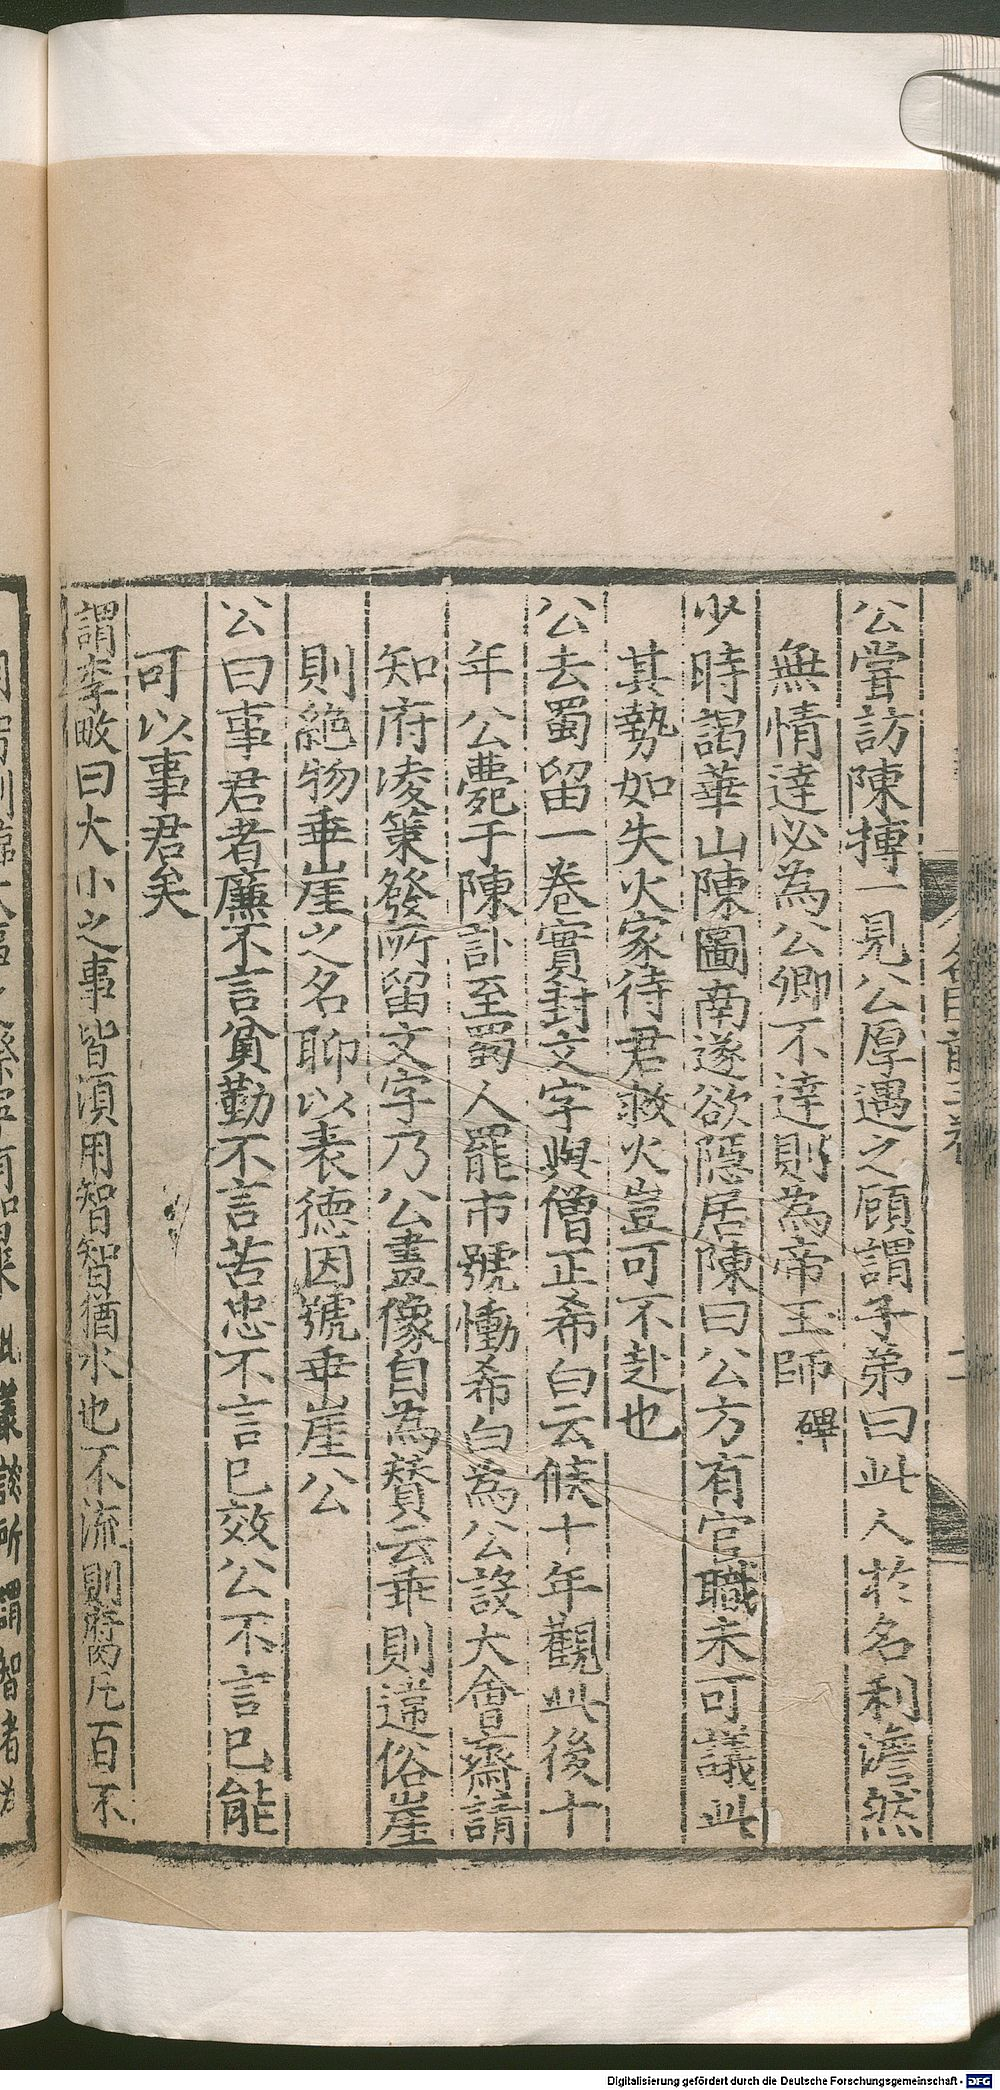 公嘗訪陳摶一見公厚遇之顧謂子弟曰此人於名利澹然
無情達必為公卿不達則為帝王師 碑
少時謁華山陳圖南遂欲隱居陳曰公方有官職未可議此
其勢如失火家待君救火豈可不赴也
公去蜀留一卷實封文字與僧正希白云候十年觀此後十
年公薨于陳訃至蜀人罷市號慟希白為公設大會齋請
知府凌策發所留文字乃公畫像自為贊云乖則違俗崖
則絕物乖崖之名聊以表德因號乖崖公
公曰事君者廉不言貧勤不言苦忠不言已效公不言已能
可以事君矣
謂李畋曰大小之事皆須用智智猶水也不流則腐凡百不
Digitalisierung gefördert durch die Deutsche Forschungsgemeinschaft - DFG